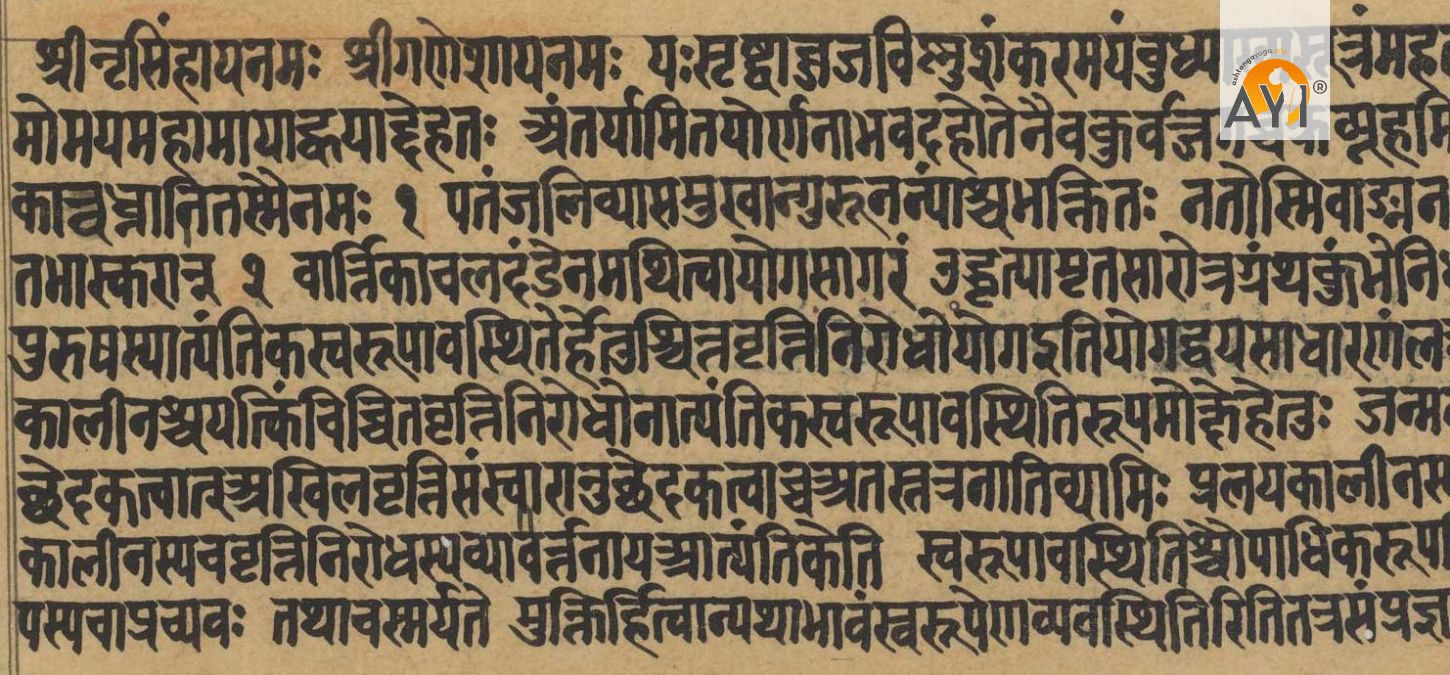 श्रीनृसिंहायनमः श्रीगणेशायनमः यःसृष्ट्वाब्जजविष्णुशंकरमयंबुध्या त्रंमह
मोमयमहामायाह्वयाद्देहतः अंतर्यामितयोर्णनाभवदहोतेनैवकुर्वञ्ज व्यूहमि
कान्बध्नातितस्मैनमः १ पतंजलिव्यासमुखान्गुरूनन्यांश्चभक्तितः नतोस्मिवाङ्मन
तभास्करान् २ वार्त्तिकाचलदंडेनमथित्वायोगसागरं उद्धृत्यामृतसारोत्रग्रंथकुंभेनि
पुरुषस्यात्यंतिकस्वरूपावस्थितेर्हेतुश्चित्तवृत्तिनिरोधोयोगइतियोगद्वयसाधारणंल
कालीनश्चयत्किंचिच्चितवृत्तिनिरोधोनात्यंतिकस्वरूपावस्थितिरूपमोक्षेहेतुः जन्म
च्छेदकत्वात्अखिलवृत्तिसंस्कारानुच्छेदकत्वाच्चअतस्तत्रनातिव्याप्तिः प्रलयकालीनस
कालीनस्यचवृत्तिनिरोधस्यव्यावर्त्तनायआत्यंतिकेति स्वरूपावस्थितिश्चौपाधिकरूपा
पस्यचाप्रच्यवः तथाचस्मर्यते मुक्तिर्हित्वान्यथाभावंस्वरूपेणव्यवस्थितिरितितत्रसंप्रज्ञा
ashtangayoga.info
AYI®